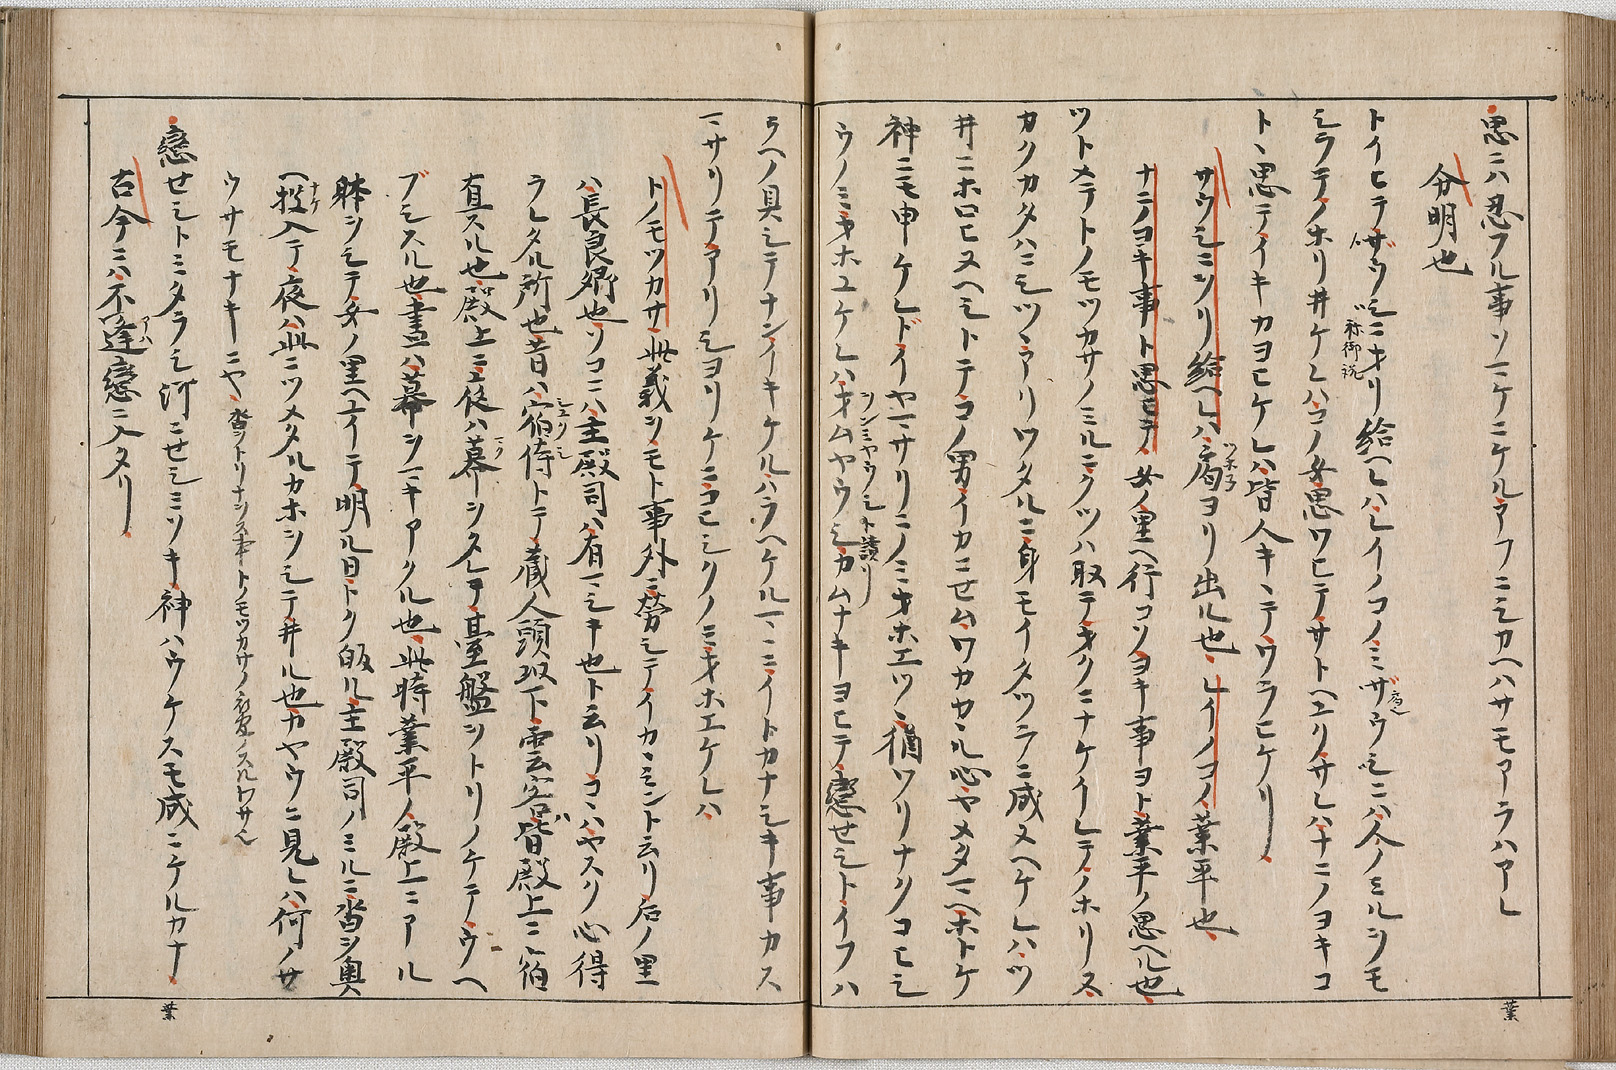 思ニハ忍フル事ソマケニケルアフニシカヘハサモアラハアレ
分明也
トイヒテサウシニオリ給ヘレハレイノコノミサウシニハ人ノミルヲモ
称御説
シラテノホリ井ケレハコノ女思ワヒテサトヘユクサレハナニノヨキコ
トヽ思テイキカヨヒケレハ皆人キヽテワラヒケリ
サウシニヲリ給ヘレハ局ヨリ出ル也レイノコノ業平也
ツホネ
ナニノヨキ事ト思ヒテ女ノ里ヘ行コソヨキ事ヨト業平ノ思ヘル也
ツトメテトノモツカサノミルニクツハ取テオクニナケイレテノホリヌ
カクカタハニシツヽアリワタルニ身モイタツラニ成ヌヘケレハツ
井ニホロヒヌヘシトテコノ男イカニせムワカカヽル心ヤメタマヘホトケ
神ニモ申ケレドイヤマサリニノミオホエツヽ猶ワリナクコヒシ
ヲンミヤウシト讀リ
ウノミオホユケレハオムヤウシカムナキヨヒテ戀せシトイフハ
ラヘノ具シテナンイキケルハラヘケルマヽニイトカナシキ事カス
マサリテアリシヨリケニコヒシクノミオホエケレハ
トノモツカサ此義ヲモト事外ニ勞シテイカヽミント云リ后ノ里
ハ長良卿也ソコニハ主殿司ハ有マシキ也ト云リコヽハヤスク心得
ラレタル所也昔ハ宿侍トテ蔵人頭以下雲客皆殿上ニ宿
シユクシ
直スル也殿上ニ夜ハ幕ヲタレヲ臺盤ヲトリノケテウヘ
マク
ブシスル也晝ハ幕ヲマキアクル也此時業平ノ殿上ニアル
躰ヲシテ女ノ里ヘイテ明ル日トク皈ル主殿司ノミルニ沓ヲ奥
ヘ投入テ夜ハ此ニツメタルカホヲシテ井ル也カヤウニ見レハ何ノサ
ナケ
ウサモナキニヤ 沓ヲトリナヲス事トノモツカサノ スルワサ也
戀せシトミタラシ河ニせシミソキ神ハウケスモ成ニケルカナ
古今ニハ不逢戀ニ入タリ
アハ
葉
葉